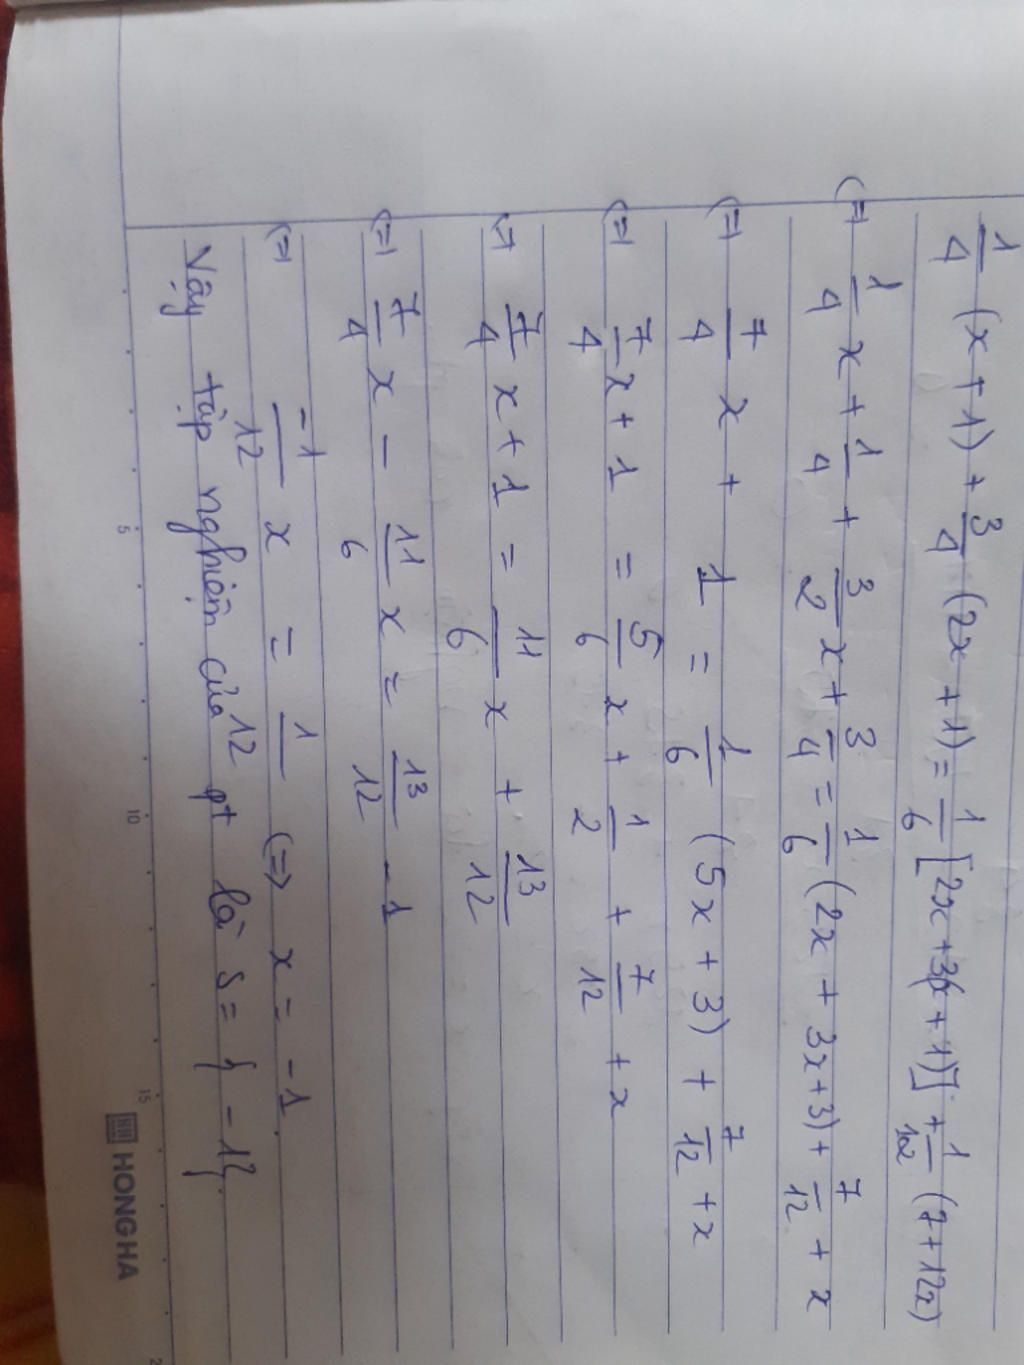 1/4 (x + 1) + 3/4 (2x + 1) = 1/6 [2x + 3(x + 1)] + 1/12 (7 + 12x)
(=) 1/4 x + 1/4 + 3/2 x + 3/4 = 1/6 (2x + 3x + 3) + 7/12 + x
(=) 7/4 x + 1 = 1/6 (5x + 3) + 7/12 + x
(=) 7/4 x + 1 = 5/6 x + 1/2 + 7/12 + x
(=) 7/4 x + 1 = 11/6 x + 13/12
(=) 7/4 x - 11/6 x = 13/12 - 1
(=) -1/12 x = 1/12 (=) x = -1.
Vậy tập nghiệm của pt là S = {-1}.
5 10 15 2
HH HONG HA